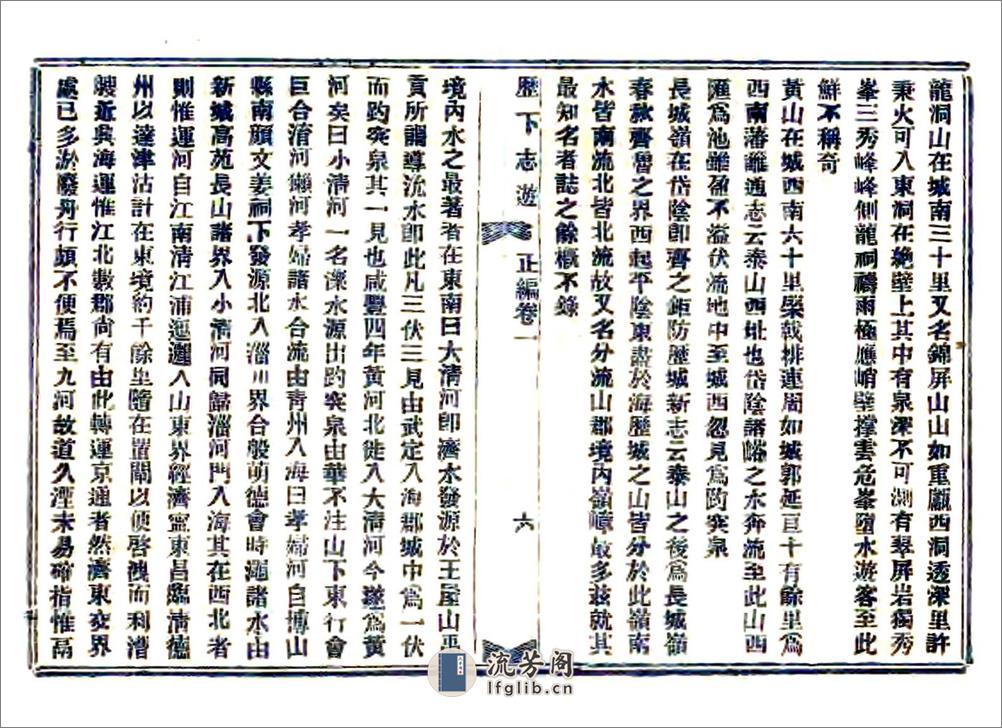 龍洞山在城南三十里又名錦屏山山如重甗西洞透深里許
秉火可入東洞在絶壁上其中有泉深不可測有翠屏岩獨秀
峯三秀峰峰側龍祠禱雨極應峭壁撑雲危峯墮水遊客至此
鮮不稱奇
黄山在城西南六十里榮戟排連周如城郭延亘十有餘里爲
西南藩籬通志云泰山西址也岱陰諸峪之水奔流至此山西
匯爲池雖盈不溢伏流地中至城西忽見爲趵突泉
長城嶺在岱陰卽齊之鉅防歷城新志云泰山之後爲長城嶺
春秋齊魯之界西起平陰東盡於海歷城之山皆分於此嶺南
水皆南流北皆北流故又名分流山郡境内嶺嶂最多玆就其
最知名者誌之餘概不錄
歷下志遊 正編卷一 六
境内水之最著者在東南曰大清河卽濟水發源於王屋山禹
貢所謂導沇水卽此凡三伏三見由武定入海郡城中爲一伏
而趵突泉其一見也咸豐四年黄河北徙入大清河今遂爲黄
河矣曰小清河一名濼水源出趵突泉由華不注山下東行會
巨合淯河獺河孝婦諸水合流由青州入海曰孝婦河自博山
縣南顔文姜祠下發源北入淄川界合般萌德會時澠諸水由
新城高苑長山諸界入小清河同歸淄河門入海其在西北者
則惟運河自江南清江浦迤邐入山東界經濟寧東昌臨清德
州以達津沽計在東境約千餘里隨在置閘以便啓洩而利漕
艘近與海運惟江北數郡尙有由此轉運京通者然濟東交界
處已多淤廢舟行頗不便焉至九河故道久湮未易確指惟鬲
流芳阁
lfglib.cn